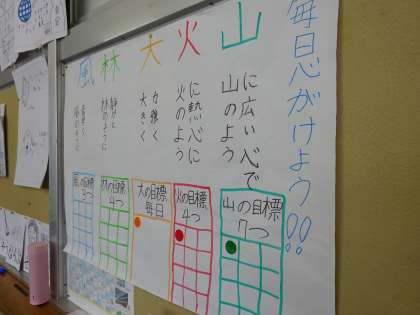 毎日心がけよう!!
山
山のよう
に広い心で
火
火のよう
に熱心に
大
大きく
力強く
林
林のように
静かに
風
風のように
山の目標
7つ
火の目標
4つ
大の目標
毎日
林の目標
4つ
風の目標